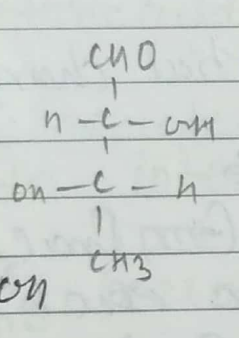 CHO
H - C - OH
OH - C - H
CH3
OH